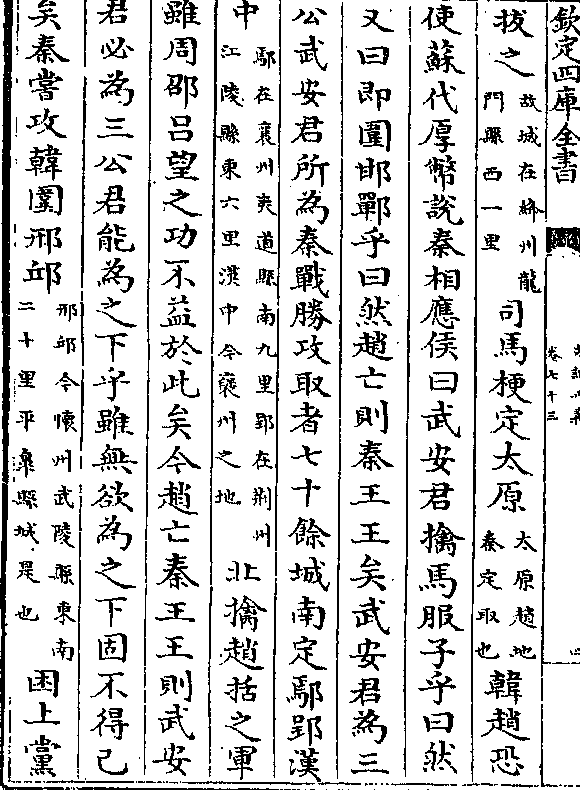 欽定四庫全書
卷七十三
拔之故城在絳州龍門縣西一里司馬梗定太原太原趙地秦定取也韓趙恐
使蘇代厚幣說秦相應侯曰武安君擒馬服子乎曰然
又曰即圍邯鄲乎曰然趙亡則秦王王矣武安君為三
公武安君所為秦戰勝攻取者七十餘城南定鄢郢漢
中鄢在襄州夷道縣南九里郢在荆州江陵縣東六里漢中今襃州之地北擒趙括之軍
雖周邵呂望之功不益於此矣今趙亡秦王王則武安
君必為三公君能為之下乎雖無欲為之下固不得已
矣秦嘗攻韓圍邢邱邢邱今懷州武陵縣東南二十里平臯縣城是也困上黨